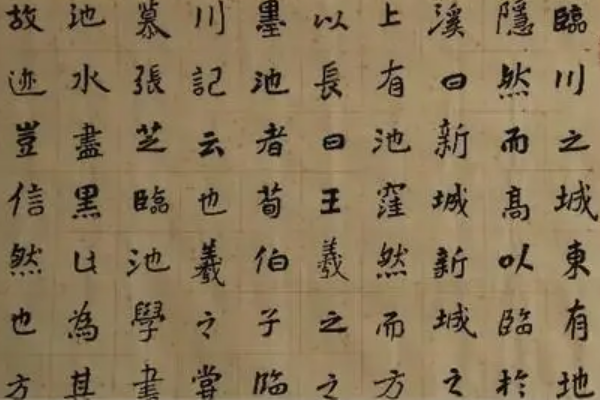 臨川之城東有地
隱然而高以臨於
溪曰新城新城之
上有池窪然而方
以長曰王羲之之
墨池者荀伯子臨
川記云也羲之嘗
慕張芝臨池學書
池水盡黑此為其
故迹豈信然也方